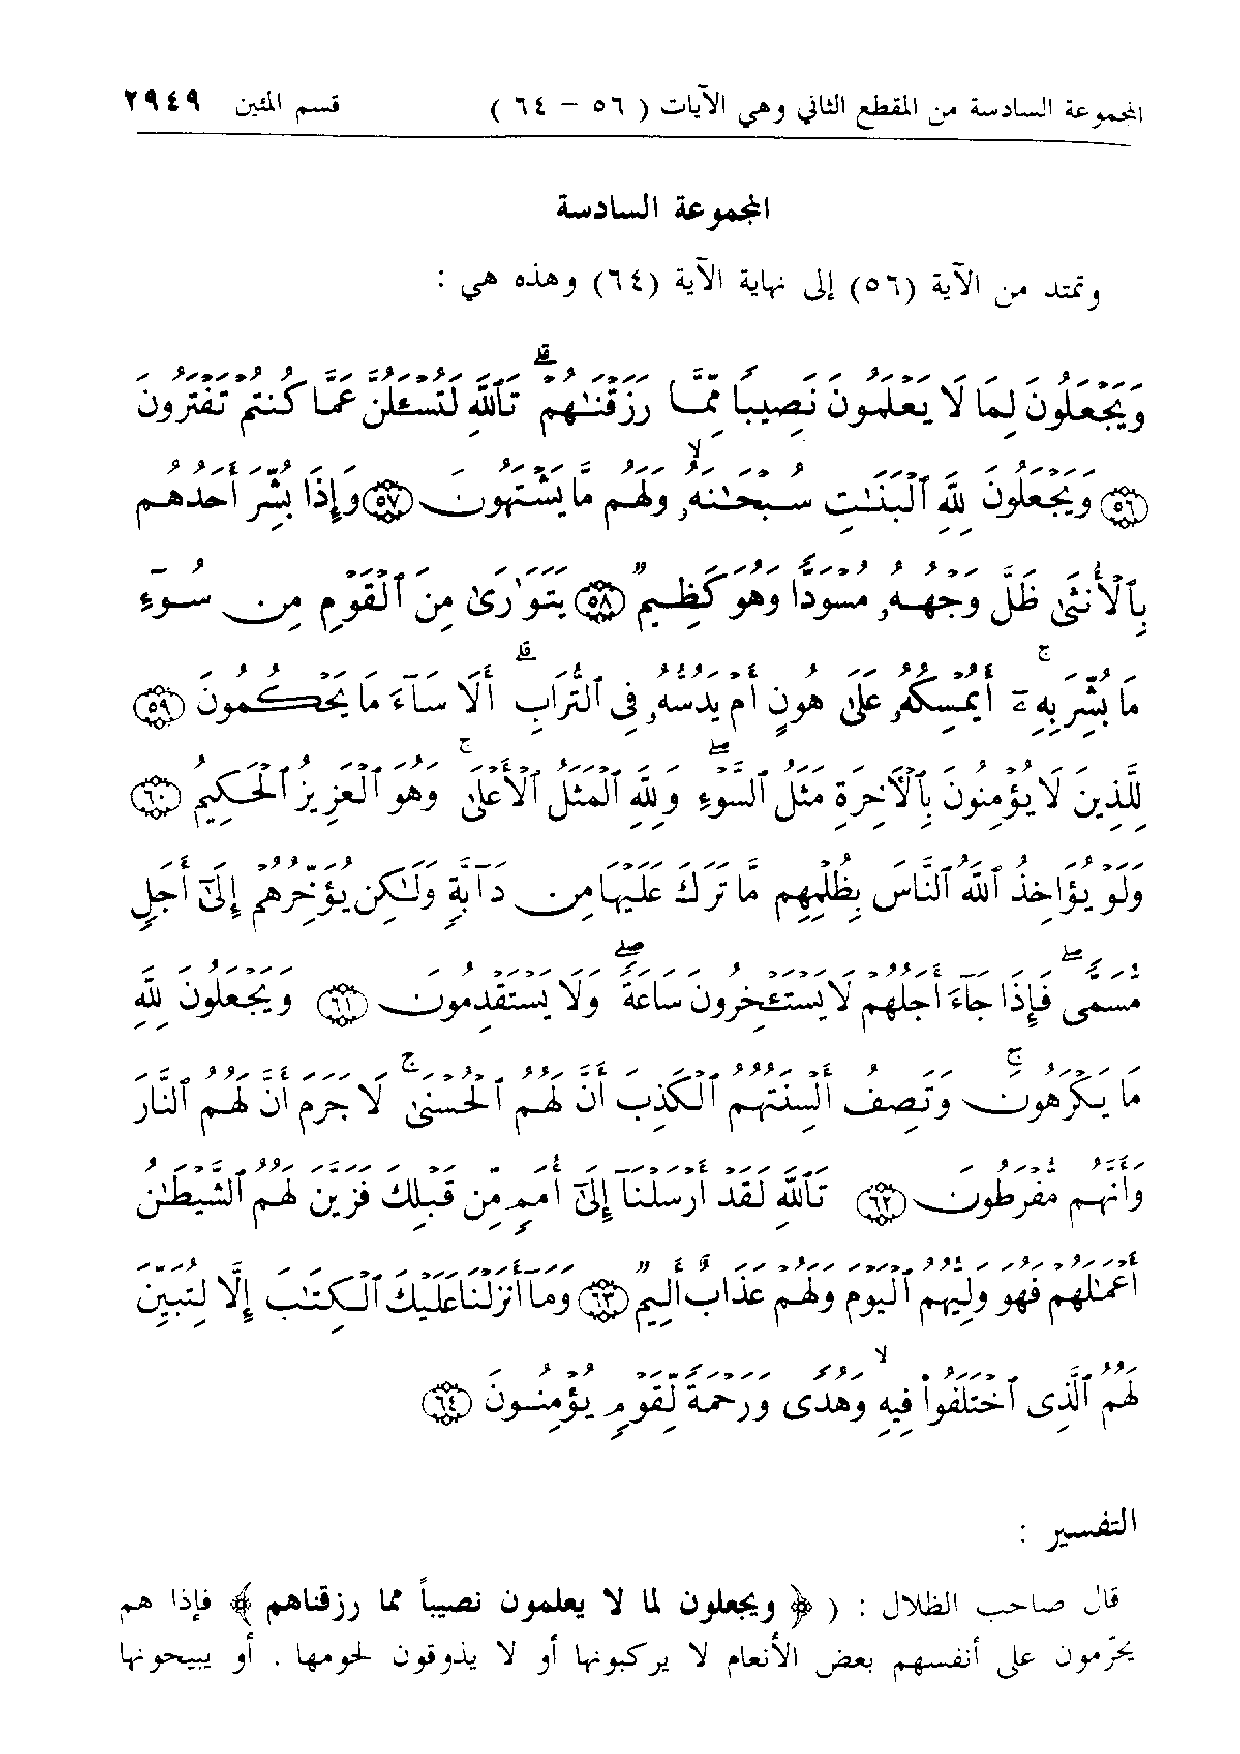 المجموعة السادسة من المقطع الثاني وهي الآيات ( ٥٦ – ٦٤ ) قسم المئين ٢٩٤٩
المجموعة السادسة
وتمتد من الآية (٥٦) إلى نهاية الآية (٦٤) وهذه هي :
وَيَجْعَلُونَ لِمَا لَا يَعْلَمُونَ نَصِيبًا مِّمَّا رَزَقْنَٰهُمْ ۗ تَٱللَّهِ لَتُسْـَٔلُنَّ عَمَّا كُنتُمْ تَفْتَرُونَ
﴿٥٦﴾ وَيَجْعَلُونَ لِلَّهِ ٱلْبَنَٰتِ سُبْحَٰنَهُۥ ۙ وَلَهُم مَّا يَشْتَهُونَ ﴿٥٧﴾ وَإِذَا بُشِّرَ أَحَدُهُم
بِٱلْأُنثَىٰ ظَلَّ وَجْهُهُۥ مُسْوَدًّا وَهُوَ كَظِيمٌ ﴿٥٨﴾ يَتَوَٰرَىٰ مِنَ ٱلْقَوْمِ مِن سُوٓءِ
مَا بُشِّرَ بِهِۦٓ ۚ أَيُمْسِكُهُۥ عَلَىٰ هُونٍ أَمْ يَدُسُّهُۥ فِى ٱلتُّرَابِ ۗ أَلَا سَآءَ مَا يَحْكُمُونَ ﴿٥٩﴾
لِلَّذِينَ لَا يُؤْمِنُونَ بِٱلْأَخِرَةِ مَثَلُ ٱلسَّوْءِ ۖ وَلِلَّهِ ٱلْمَثَلُ ٱلْأَعْلَىٰ ۚ وَهُوَ ٱلْعَزِيزُ ٱلْحَكِيمُ ﴿٦٠﴾
وَلَوْ يُؤَاخِذُ ٱللَّهُ ٱلنَّاسَ بِظُلْمِهِم مَّا تَرَكَ عَلَيْهَا مِن دَآبَّةٍ وَلَٰكِن يُؤَخِّرُهُمْ إِلَىٰٓ أَجَلٍ
مُّسَمًّى ۖ فَإِذَا جَآءَ أَجَلُهُمْ لَا يَسْتَـْٔخِرُونَ سَاعَةً ۖ وَلَا يَسْتَقْدِمُونَ ﴿٦١﴾ وَيَجْعَلُونَ لِلَّهِ
مَا يَكْرَهُونَ ۚ وَتَصِفُ أَلْسِنَتُهُمُ ٱلْكَذِبَ أَنَّ لَهُمُ ٱلْحُسْنَىٰ ۚ لَا جَرَمَ أَنَّ لَهُمُ ٱلنَّارَ
وَأَنَّهُم مُّفْرَطُونَ ﴿٦٢﴾ تَٱللَّهِ لَقَدْ أَرْسَلْنَآ إِلَىٰٓ أُمَمٍ مِّن قَبْلِكَ فَزَيَّنَ لَهُمُ ٱلشَّيْطَٰنُ
أَعْمَٰلَهُمْ فَهُوَ وَلِيُّهُمُ ٱلْيَوْمَ وَلَهُمْ عَذَابٌ أَلِيمٌ ﴿٦٣﴾ وَمَآ أَنزَلْنَا عَلَيْكَ ٱلْكِتَٰبَ إِلَّا لِتُبَيِّنَ
لَهُمُ ٱلَّذِى ٱخْتَلَفُوا۟ فِيهِ ۙ وَهُدًى وَرَحْمَةً لِّقَوْمٍ يُؤْمِنُونَ ﴿٦٤﴾
التفسير :
قال صاحب الظلال : ( ﴿ ويجعلون لما لا يعلمون نصيباً مما رزقناهم ﴾ فإذا هم
يحرّمون على أنفسهم بعض الأنعام لا يركبونها أو لا يذوقون لحومها . أو يبيحونها